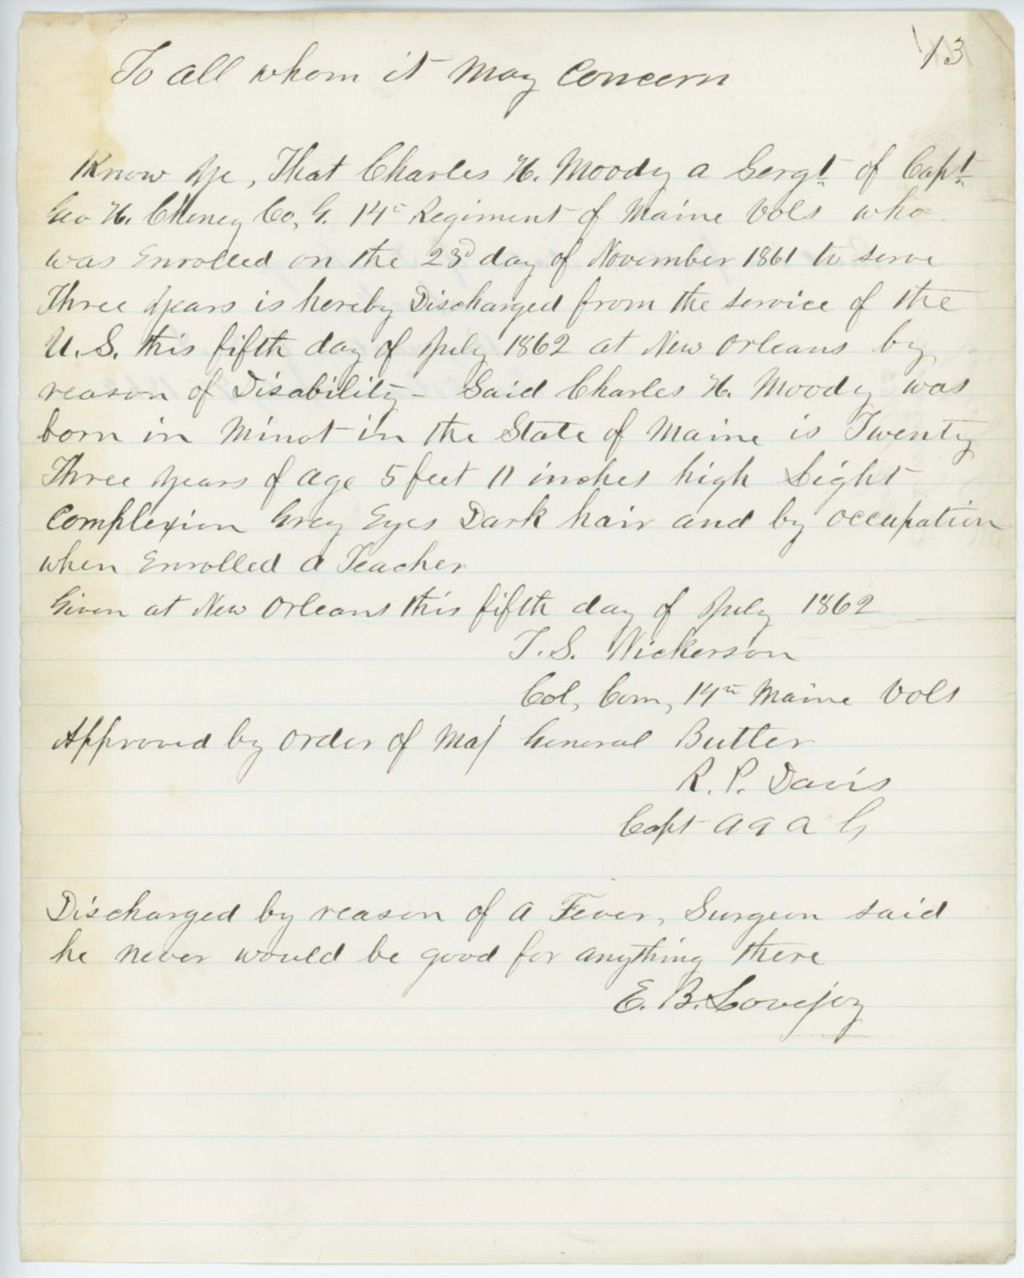 13
To all whom it may Concern
Know ye, That Charles H. Moody a Sergt of Capt
Geo H. Cheney Co, G. 14th Regiment of Maine Vols who
was Enrolled on the 23d day of November 1861 to serve
Three years is hereby Discharged from the service of the
U.S. this fifth day of July 1862 at New Orleans by
reason of Disability - Said Charles H. Moody was
born in Minot in the State of Maine is Twenty
Three years of age 5 feet 11 inches high Light
Complexion Grey Eyes Dark hair and by occupation
when Enrolled a Teacher
Given at New Orleans this fifth day of July 1862
F.S. Nickerson
Col, Com, 14th Maine Vols
Approved by order of Maj General Butler
R. P. Davis
Capt A A A G
Discharged by reason of a Fever, Surgeon said
he never would be good for anything there
E. B. Lovejoy